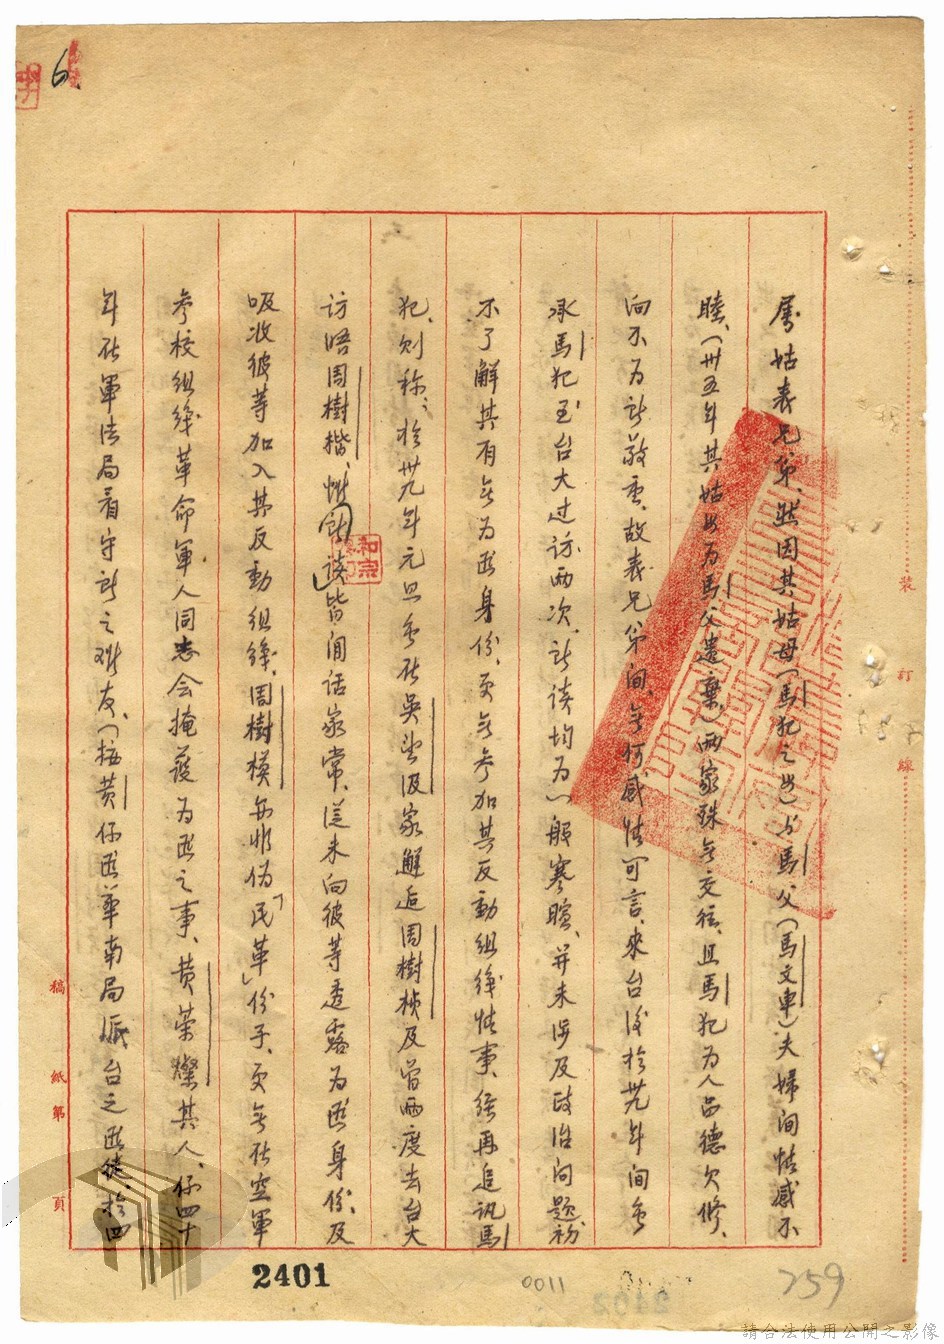 6
屬姑表兄弟、然因其姑母(馬犯之母)与馬父(馬文車)夫婦间情感不
睦、(卅五年其姑母为馬父遺棄)兩家殊無交往、且馬犯为人品德欠修、
向不为所敬重、故表兄弟间、無何感情可言、來台後於卅九年间曾
承馬犯至台大过訪兩次、所谈均为一般寒暄、并未涉及政治问题、初
不了解其有無为匪身份、更無参加其反動组織情事、经再追訊馬
犯、则称、於卅九年元旦曾在吳 家邂逅周樹楨及曾兩度去台大
访晤周樹楷、惟所谈皆闲话家常、從未向彼等透露为匪身份、及
吸收彼等加入其反動组織、周樹模亦非伪「民革」份子、更無在空軍
参校组織革命軍人同志会掩護为匪之事、黄荣燦其人、係四十
年在軍法局看守所之难友、(按黄係匪華南局派台之匪徒、於四
裝
訂
線
稿
紙第
頁
2401
0011
259
請合法使用公開之影像